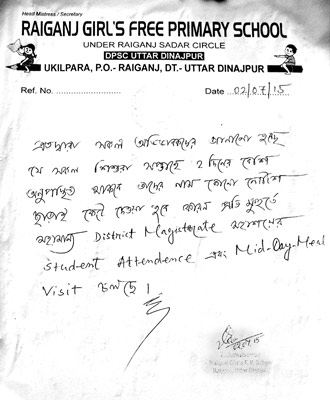 Head Mistress / Secretary
RAIGANJ GIRL'S FREE PRIMARY SCHOOL
UNDER RAIGANJ SADAR CIRCLE
DPSC UTTAR DINAJPUR
UKILPARA, P.O.- RAIGANJ, DT.- UTTAR DINAJPUR
Ref. No. ........................
Date 02/07/15
এতদ্বারা সকল অভিভাবকদের জানানো হচ্ছে
যে সকল শিশুরা সপ্তাহে 2 দিনের বেশি
অনুপস্থিত থাকবে তাদের নাম কোনো নোটিশ
ছাড়াই কেটে দেওয়া হবে কারন প্রতি মুহুর্তে
মহামান্য District Magistrate মহাশয়ের
Student Attendence এবং Mid-Day-Meal
Visit চলছে।